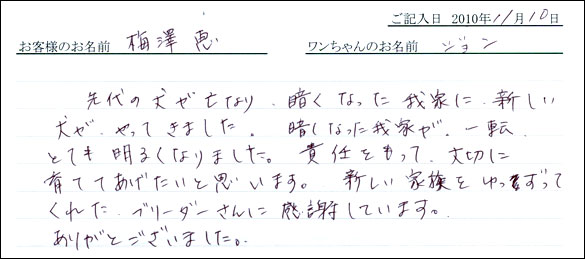 ご記入日 2010年11月10日
お客様のお名前 梅澤 恵 ワンちゃんのお名前 ジョン
先代の犬が亡なり、暗くなった我家に、新しい
犬が、やってきました。 暗くなった我家が、一転、
とても明るくなりました。責任をもって、大切に
育ててあげたいと思います。 新しい家族をゆずって
くれた、ブリーダーさんに感謝しています。
ありがとございました。